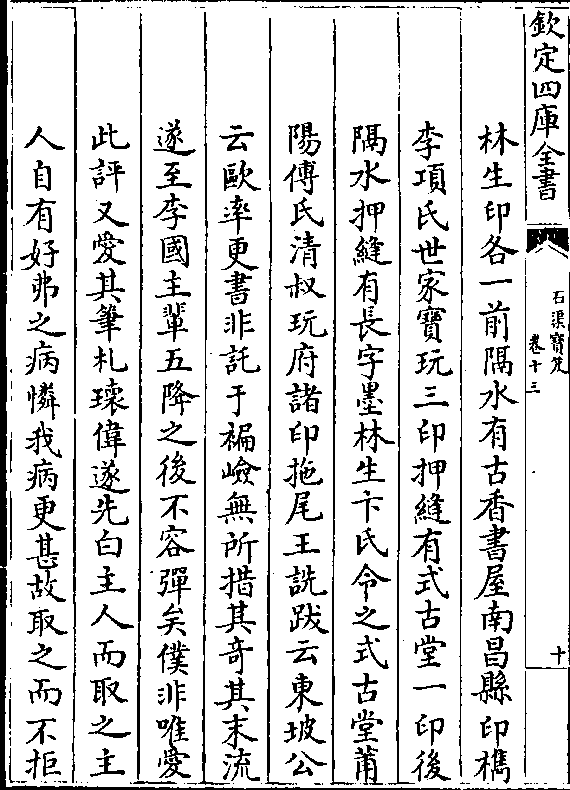 欽定四庫全書
石渠寶笈
卷十三
十
林生印各一前隔水有古香書屋南昌縣印檇
李項氏世家寶玩三印押縫有式古堂一印後
隔水押縫有長字墨林生卞氏令之式古堂莆
陽傅氏清叔玩府諸印拖尾王詵跋云東坡公
云歐率更書非託于褊嶮無所措其奇其末流
遂至李國主輩五降之後不容彈矣僕非唯愛
此評又愛其筆札瓌偉遂先白主人而取之主
人自有好弗之病憐我病更甚故取之而不拒